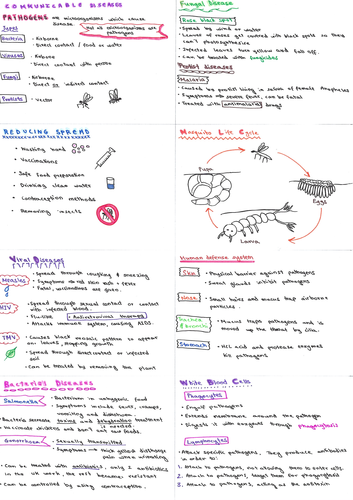 COMMUNICABLE DISEASES
PATHOGENS are microorganisms which cause
disease
Types
Not all microorganisms are
pathogens
Bacteria
- Airborne
- Direct contact / food or water
Viruses
- Airborne
- Direct contact with person
Fungi
- Airborne
- Direct or indirect contact
Protists
- Vector
Fungal Disease
Rose black spot
- Spread by wind or water
- Leaves of infected get covered with black spots so they
can't photosynthesise
- Infected leaves turn yellow and fall off.
- Can be treated with fungicides
Protist diseases
Malaria
- Caused by protist living in saliva of female Anopheles
- Symptoms are severe fever, can be fatal
- Treated with antimalarial drugs
REDUCING SPREAD
• Washing hand
• Vaccinations
• Safe food preparation
• Drinking clean water
• Contraception methods
• Removing insects
Mosquito Life Cycle
Pupa
Eggs
Larva
Viral Diseases
Measles
- Spread through coughing & sneezing
- Symptoms are red skin rash + fever
- Fatal, vaccinations are given.
HIV
- Spread through sexual contact or contact
with infected blood.
- Flu-like
Antiretroviral therapy
- Attacks immune system, causing AIDS
TMV
- Causes black mosaic pattern to appear
on leaves, stopping growth
- Spread through direct contact or infected
soil
- Can be treated by removing the plant
Human defence system
Skin
• Physical barrier against pathogens
• Sweat glands inhibit pathogens
Nose
• Small hairs and mucus trap airborne
particles
Trachea
& bronchi
• Mucus traps pathogens and is
moved up the throat by cilia.
Stomach
• HCl acid and protease enzymes
kill pathogens
Bacterial Diseases
Salmonella
• Bacterium in unhygienic food
• Symptoms include fever, cramps,
vomiting and diarrhoea
Gonorrhoea
- Sexually transmitted
- Symptoms → thick yellow discharge
pain when urinating
• Can be treated with antibiotics
• Can be controlled by using contraception.
White Blood Cells
Phagocytes
• Engulf pathogens
• Extends membrane around the pathogen
• Digests it with enzymes through phagocytosis
Lymphocytes
• Attack specific pathogens, they produce antibodies
in order to:
1. Attach to pathogens, not allowing them to enter cells.
2. Attach to pathogens, target them for phagocytosis
3. Attach to pathogens, acting as the antitoxin